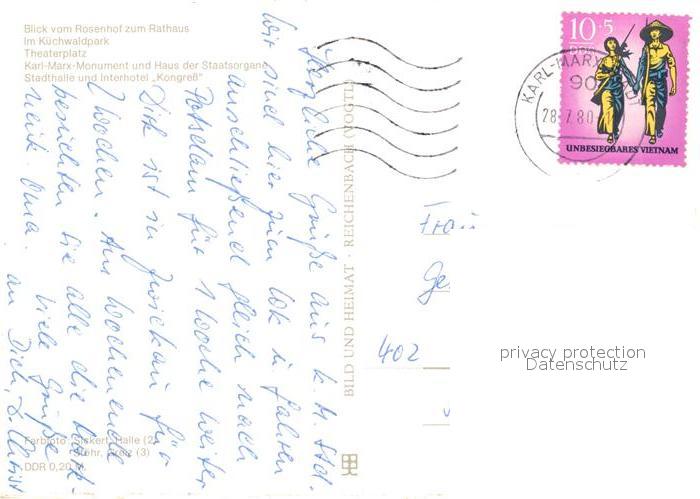 Blick vom Rosenhof zum Rathaus
Im Küchwaldpark
Theaterplatz
Karl-Marx-Monument und Haus der Staatsorgane
Stadthalle und Interhotel „Kongreß"
Herzliche Grüße aus K. M. Std.
Wir sind hier zum fahren
anschließend gleich nach
Potsdam für 1 Woche weiter
Dirk ist in Zwickau für
2 Wochen. Am Wochenende
besichten sie alle die
meine Oma. Viele Grüße
an Dich,
Farbfoto: Sickert, Halle (2)
(3)
DDR 0,20 M.
BILD UND HEIMAT · REICHENBACH (VOGTL)
10+5
UNBESIEGBARES VIETNAM
KARL-MARX
90
28.7.80
Frau
Ge
402
privacy protection
Datenschutz